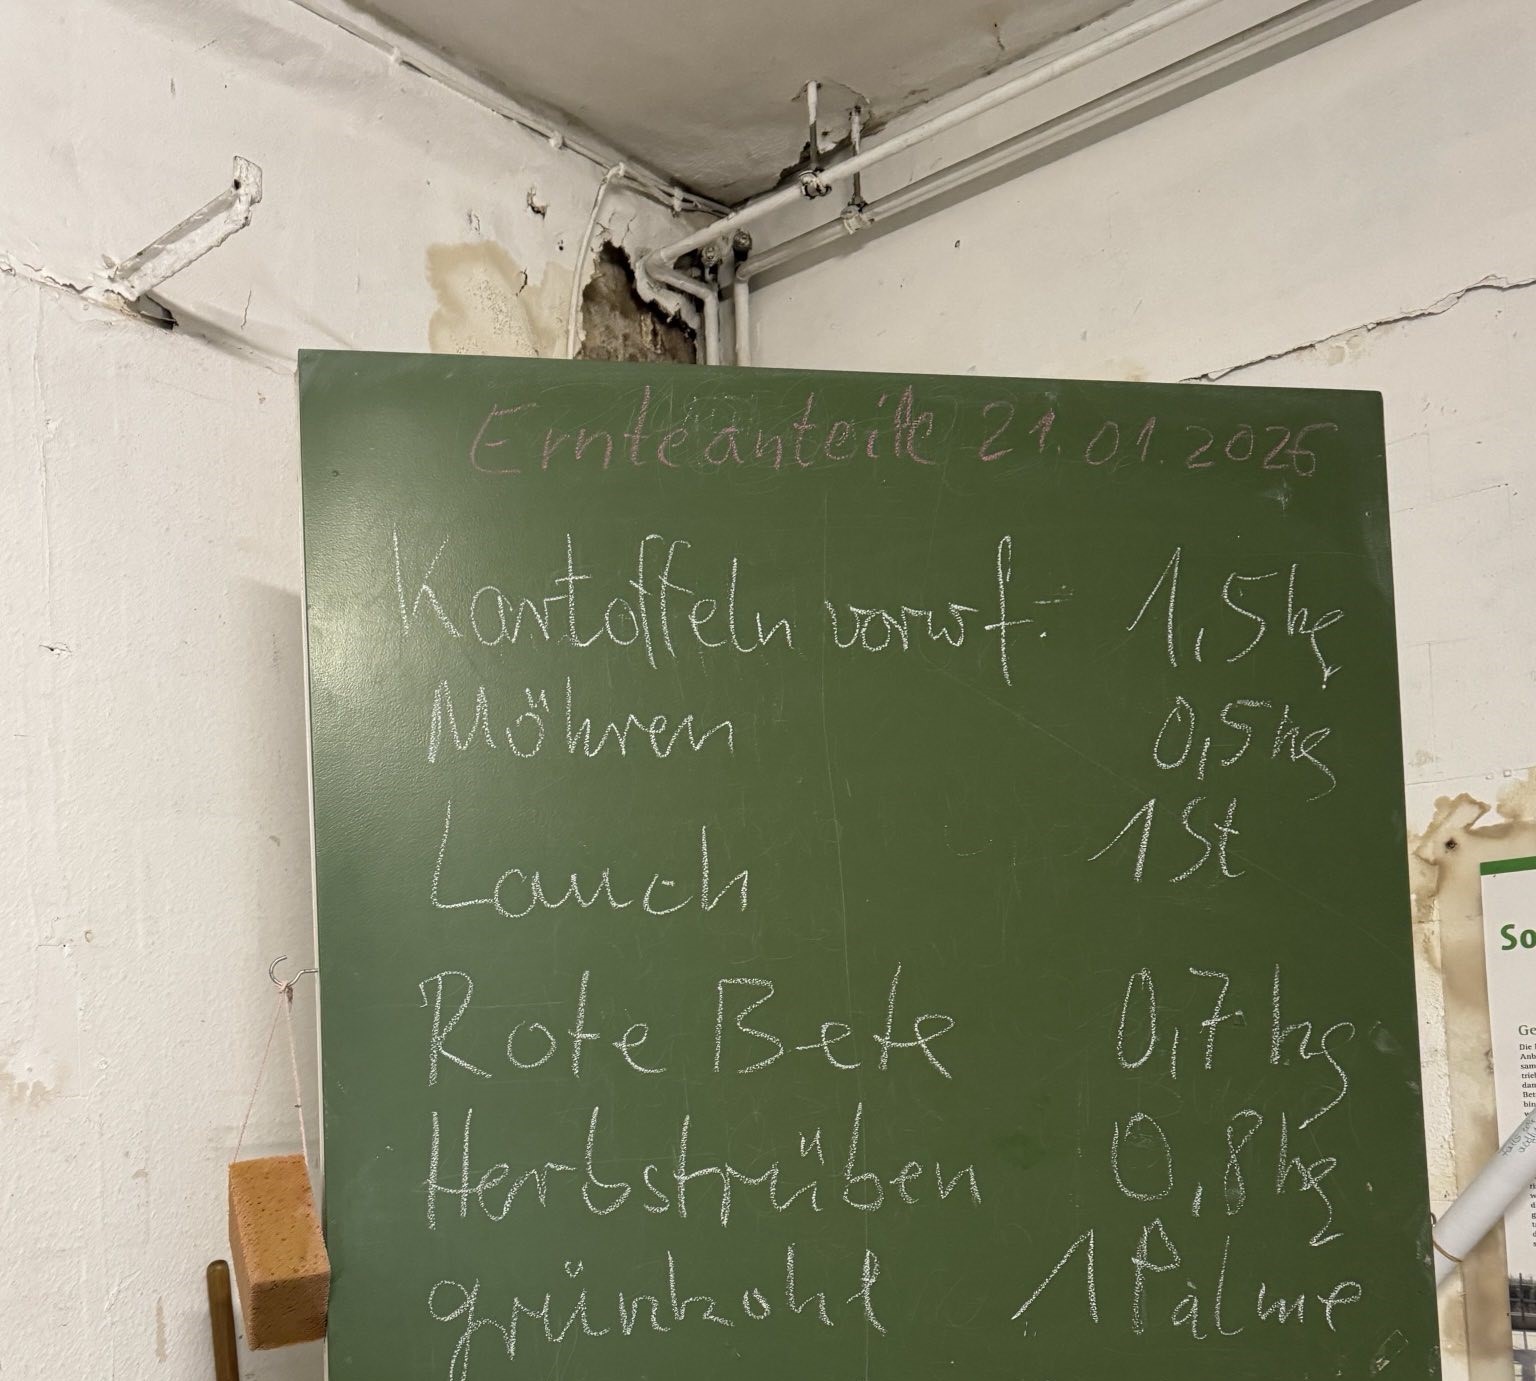 Ernteanteile 21.01.2026
Kartoffeln vorw f. 1,5kg
Möhren 0,5kg
Lauch 1 St
Rote Bete 0,7 kg
Herbstrüben 0,8kg
grünkohl 1 Palme
So
Ge